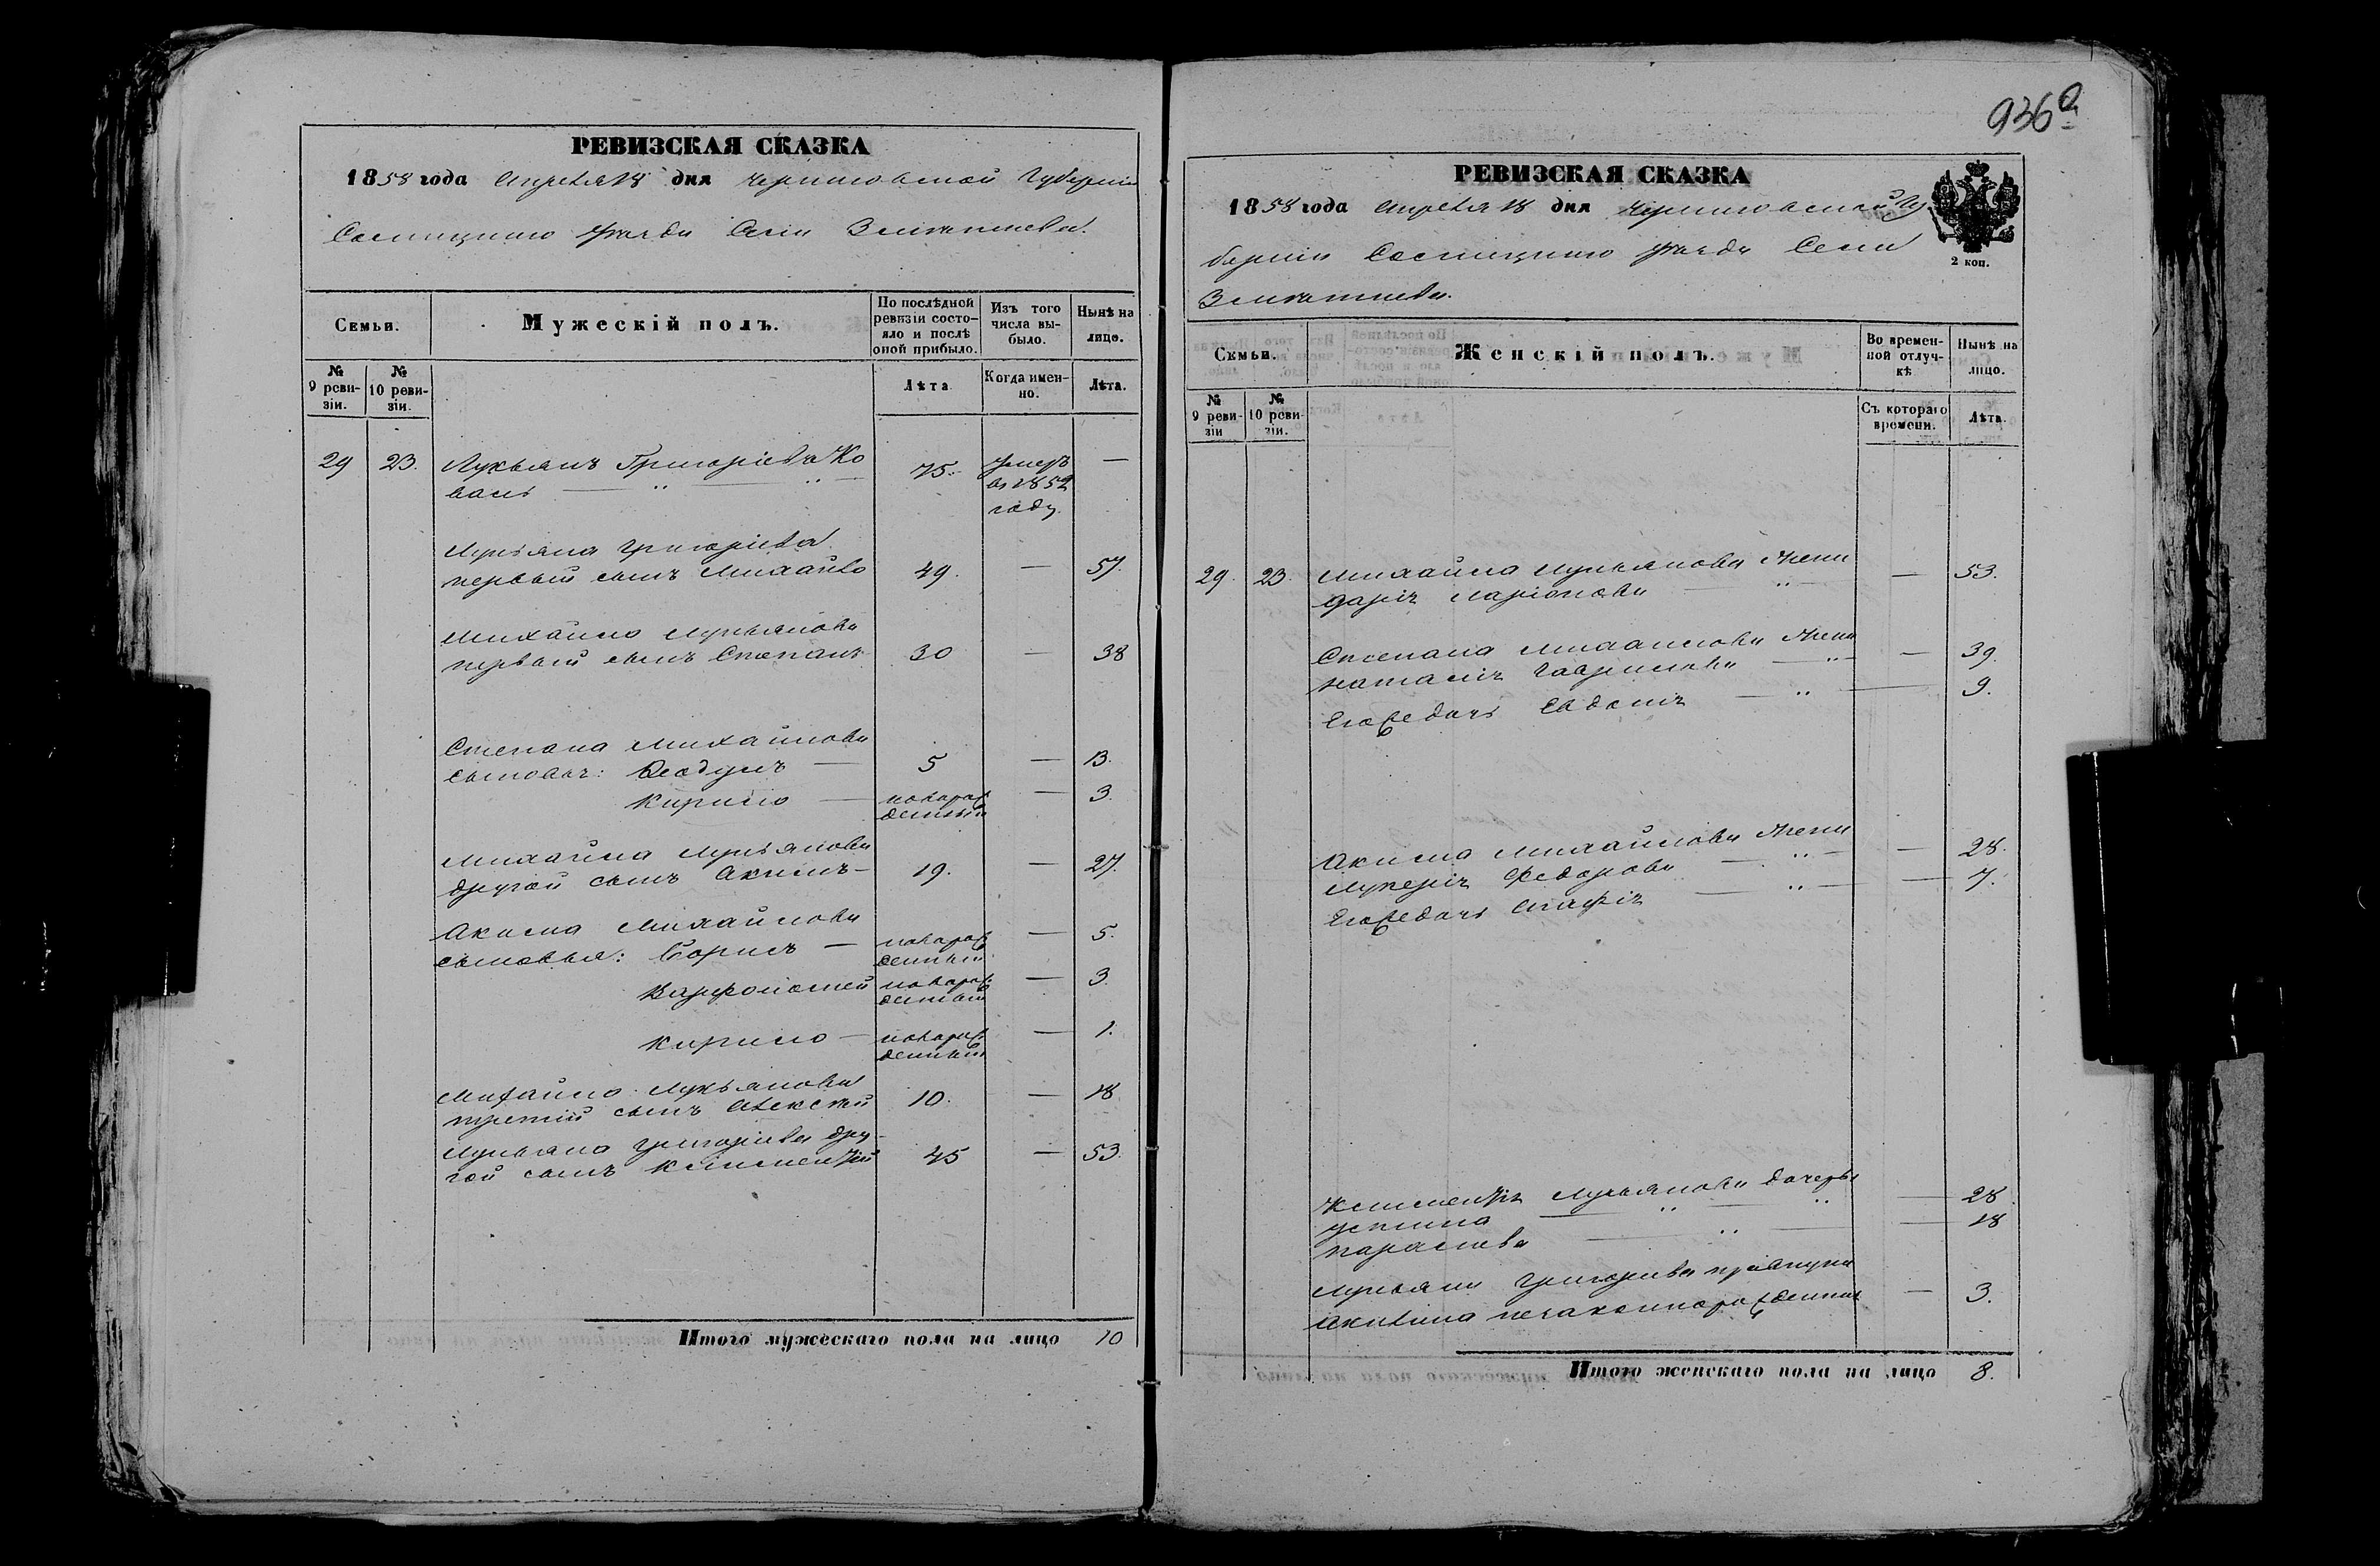 РЕВИЗСКАЯ СКАЗКА
1858 года Апреля 18 дня Черниговской Губернии
Сосницкого Уезда Села
Семьи.
Мужескій полъ.
По послѣдней ревизіи состояло и послѣ оной прибыло.
Изъ того числа выбыло.
Нынѣ на лицо.
№ 9 ревизіи.
№ 10 ревизіи.
Лѣта
Когда именно.
Лѣта.
29 23. Лукьянъ Григоріевъ Ко 75. умеръ —
валь въ 1852
году.
Лукьяна Григоріева
первый сынъ Михайло 49. — 57.
Михайло Лукьянова
первый сынъ Степанъ 30 — 38
Степана Михайлова
сыновья: — 5 — 13.
Кирило — новорож — 3.
денный
Михайла Лукьянова
другой сынъ Акимъ — 19. — 27.
Акима Михайлова
сыновья: Борисъ — новорож — 5.
денный
Варфоломей новорож — 3.
денный
Кирило — новорож — 1.
денный
Михайло Лукьянова
третій сынъ Алексѣй 10. — 18
Лукьяна Григоріева дру-
гой сынъ Климентій 45 — 53.
Итого мужескаго пола на лицо 10
936
РЕВИЗСКАЯ СКАЗКА
1858 года Апреля 18 дня Черниговской Гу
берніи Сосницкого Уезда Села
2 коп.
Семьи.
Женскій полъ.
Во временной отлучкѣ
Нынѣ на лицо.
№ 9 ревизіи
№ 10 ревизіи.
Съ котораго времени.
Лѣта.
29. 23. Михайла Лукьянова жена
Дарія Ларіонова — 53.
Степана Михайлова жена
Наталія Гаврилова — 39.
Его же дочь Евдокія — 9.
Акима Михайлова жена
Лукерія Федорова — 28.
Его же дочь Агафія — 7.
Климентія Лукьянова дочеры
Устина — 28
Параскева — 18
Лукьяна Григорьева правнука
Акилина незаконнорожденная — 3.
Итого женскаго пола на лицо 8.